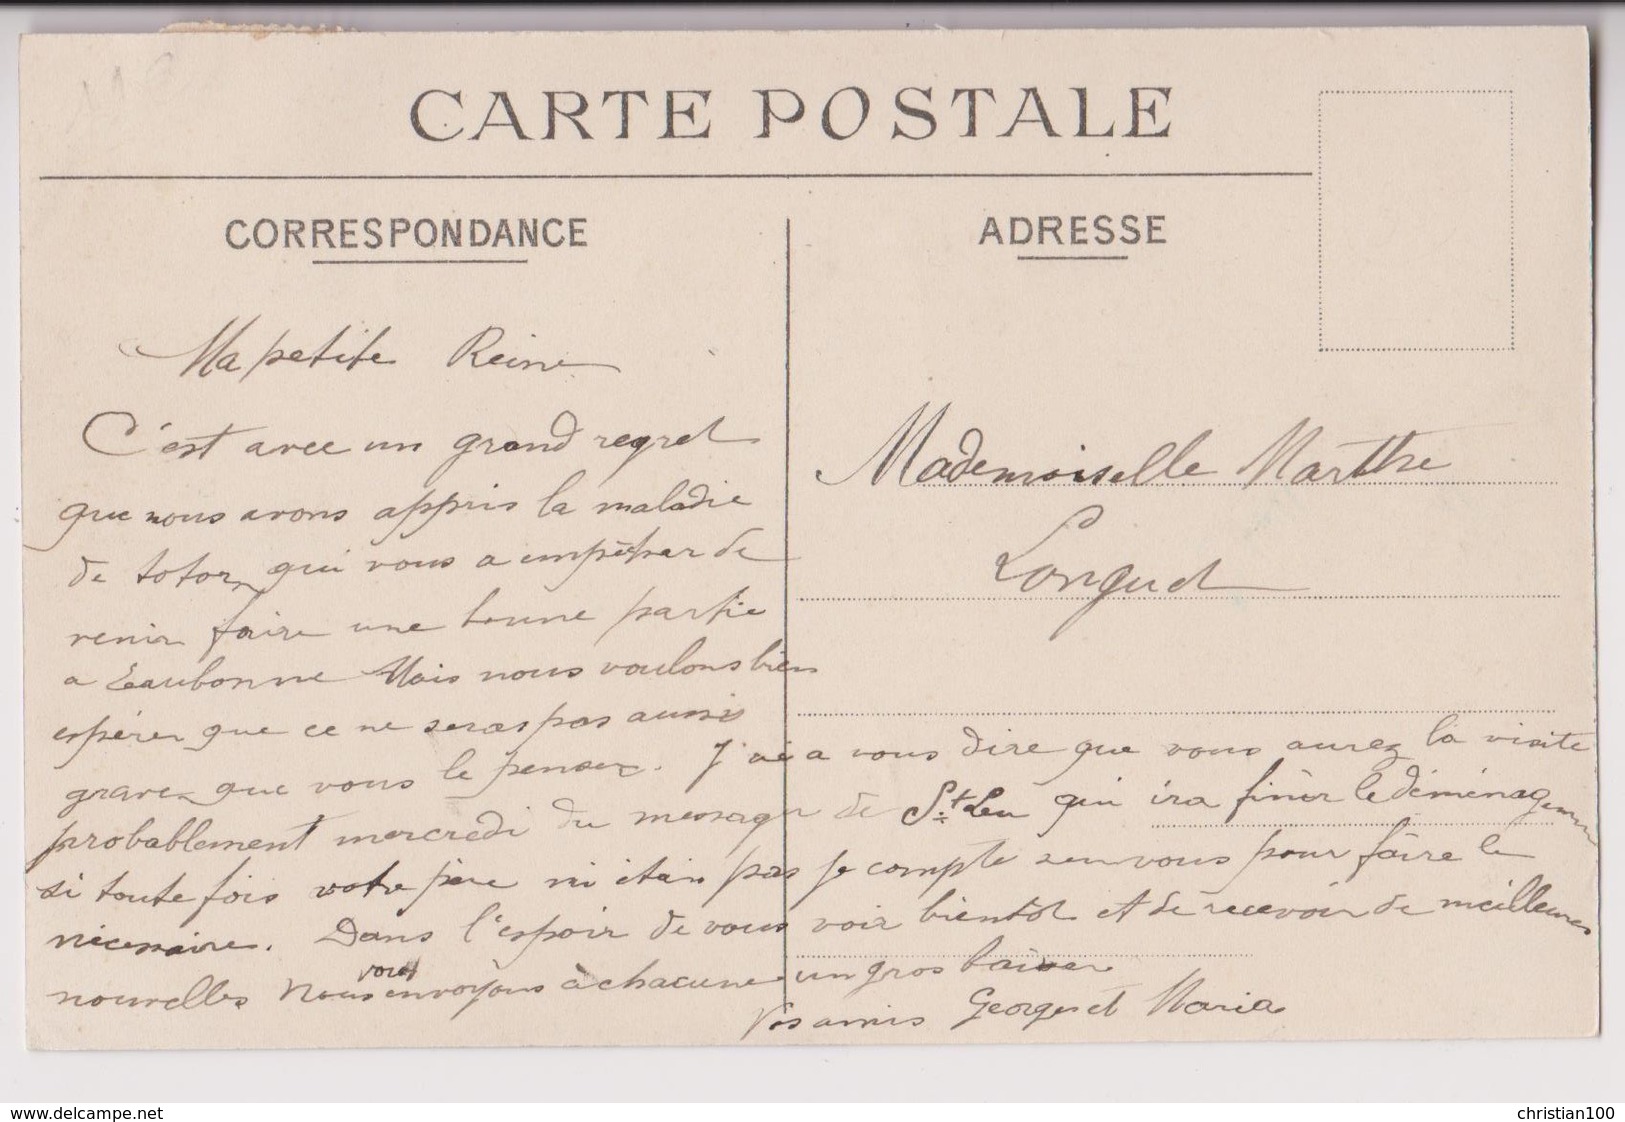 CARTE POSTALE
CORRESPONDANCE
ADRESSE
Ma petite Reine
C'est avec un grand regret
que nous avons appris la maladie
de totor qui vous a empêcher de
venir faire une bonne partie
a Eaubonne Mais nous voulons bien
espérer que ce ne seras pas aussi
grave que vous le pensez. J'ai a vous dire que vous aurez la visite
probablement mercredi du messager de St Leu qui ira finir le déménagement
si toute fois votre père ni étais pas je compte sur vous pour faire le
nécessaire. Dans l'espoir de vous voir bientôt et de recevoir de meilleures
nouvelles Nous vous envoyons à chacune un gros baiser
Vos amis Georges et Maria
Mademoiselle Marthe
Longuet
www.delcampe.net
christian100